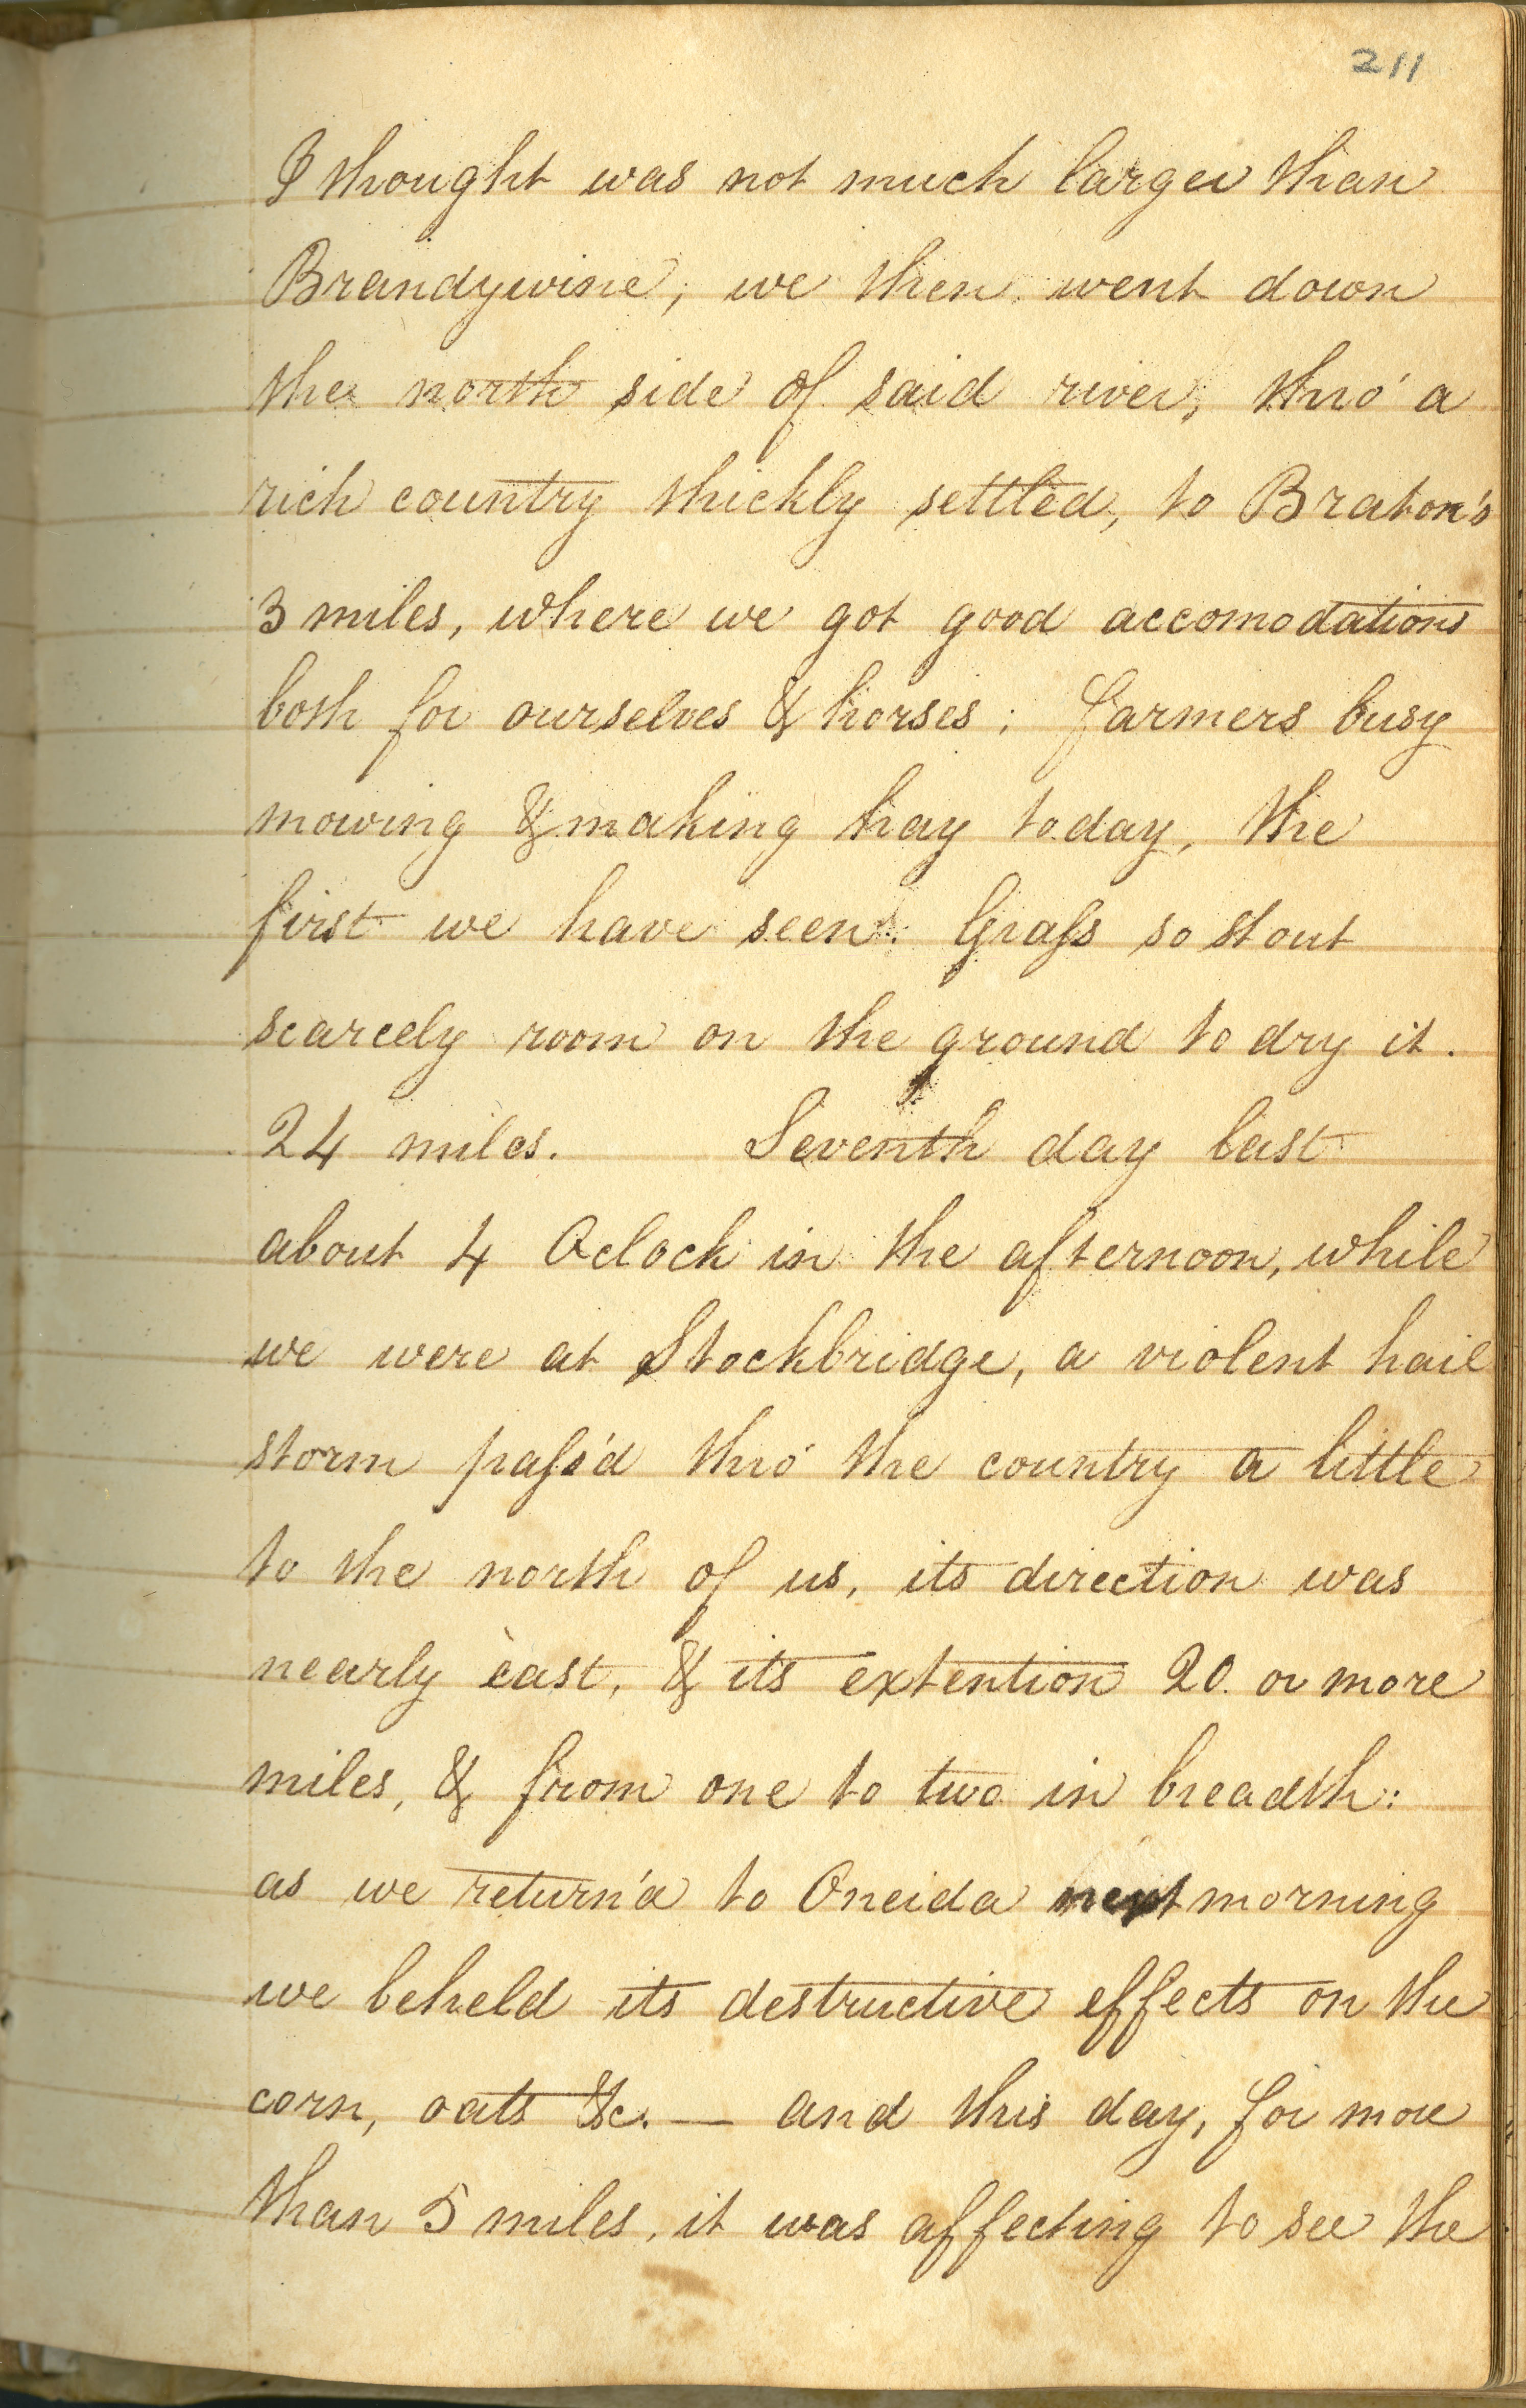 211
I thought was not much larger than
Brandywine, we then went down
the north side of said river, thro' a
rich country thickly settled, to Braton's
3 miles, where we got good accomodations
both for ourselves & horses; farmers busy
mowing & making hay today, the
first we have seen. Graſs so stout
scarcely room on the ground to dry it.
24 miles. Seventh day last
about 4 Oclock in the afternoon, while
we were at Stockbridge, a violent hail
storm paſs'd thro' the country a little
to the north of us, its direction was
nearly east, & its extention 20 or more
miles, & from one to two in breadth:
as we return'd to Oneida next morning
we beheld its destructive effects on the
corn, oats &c. — and this day, for more
than 5 miles, it was affecting to see the